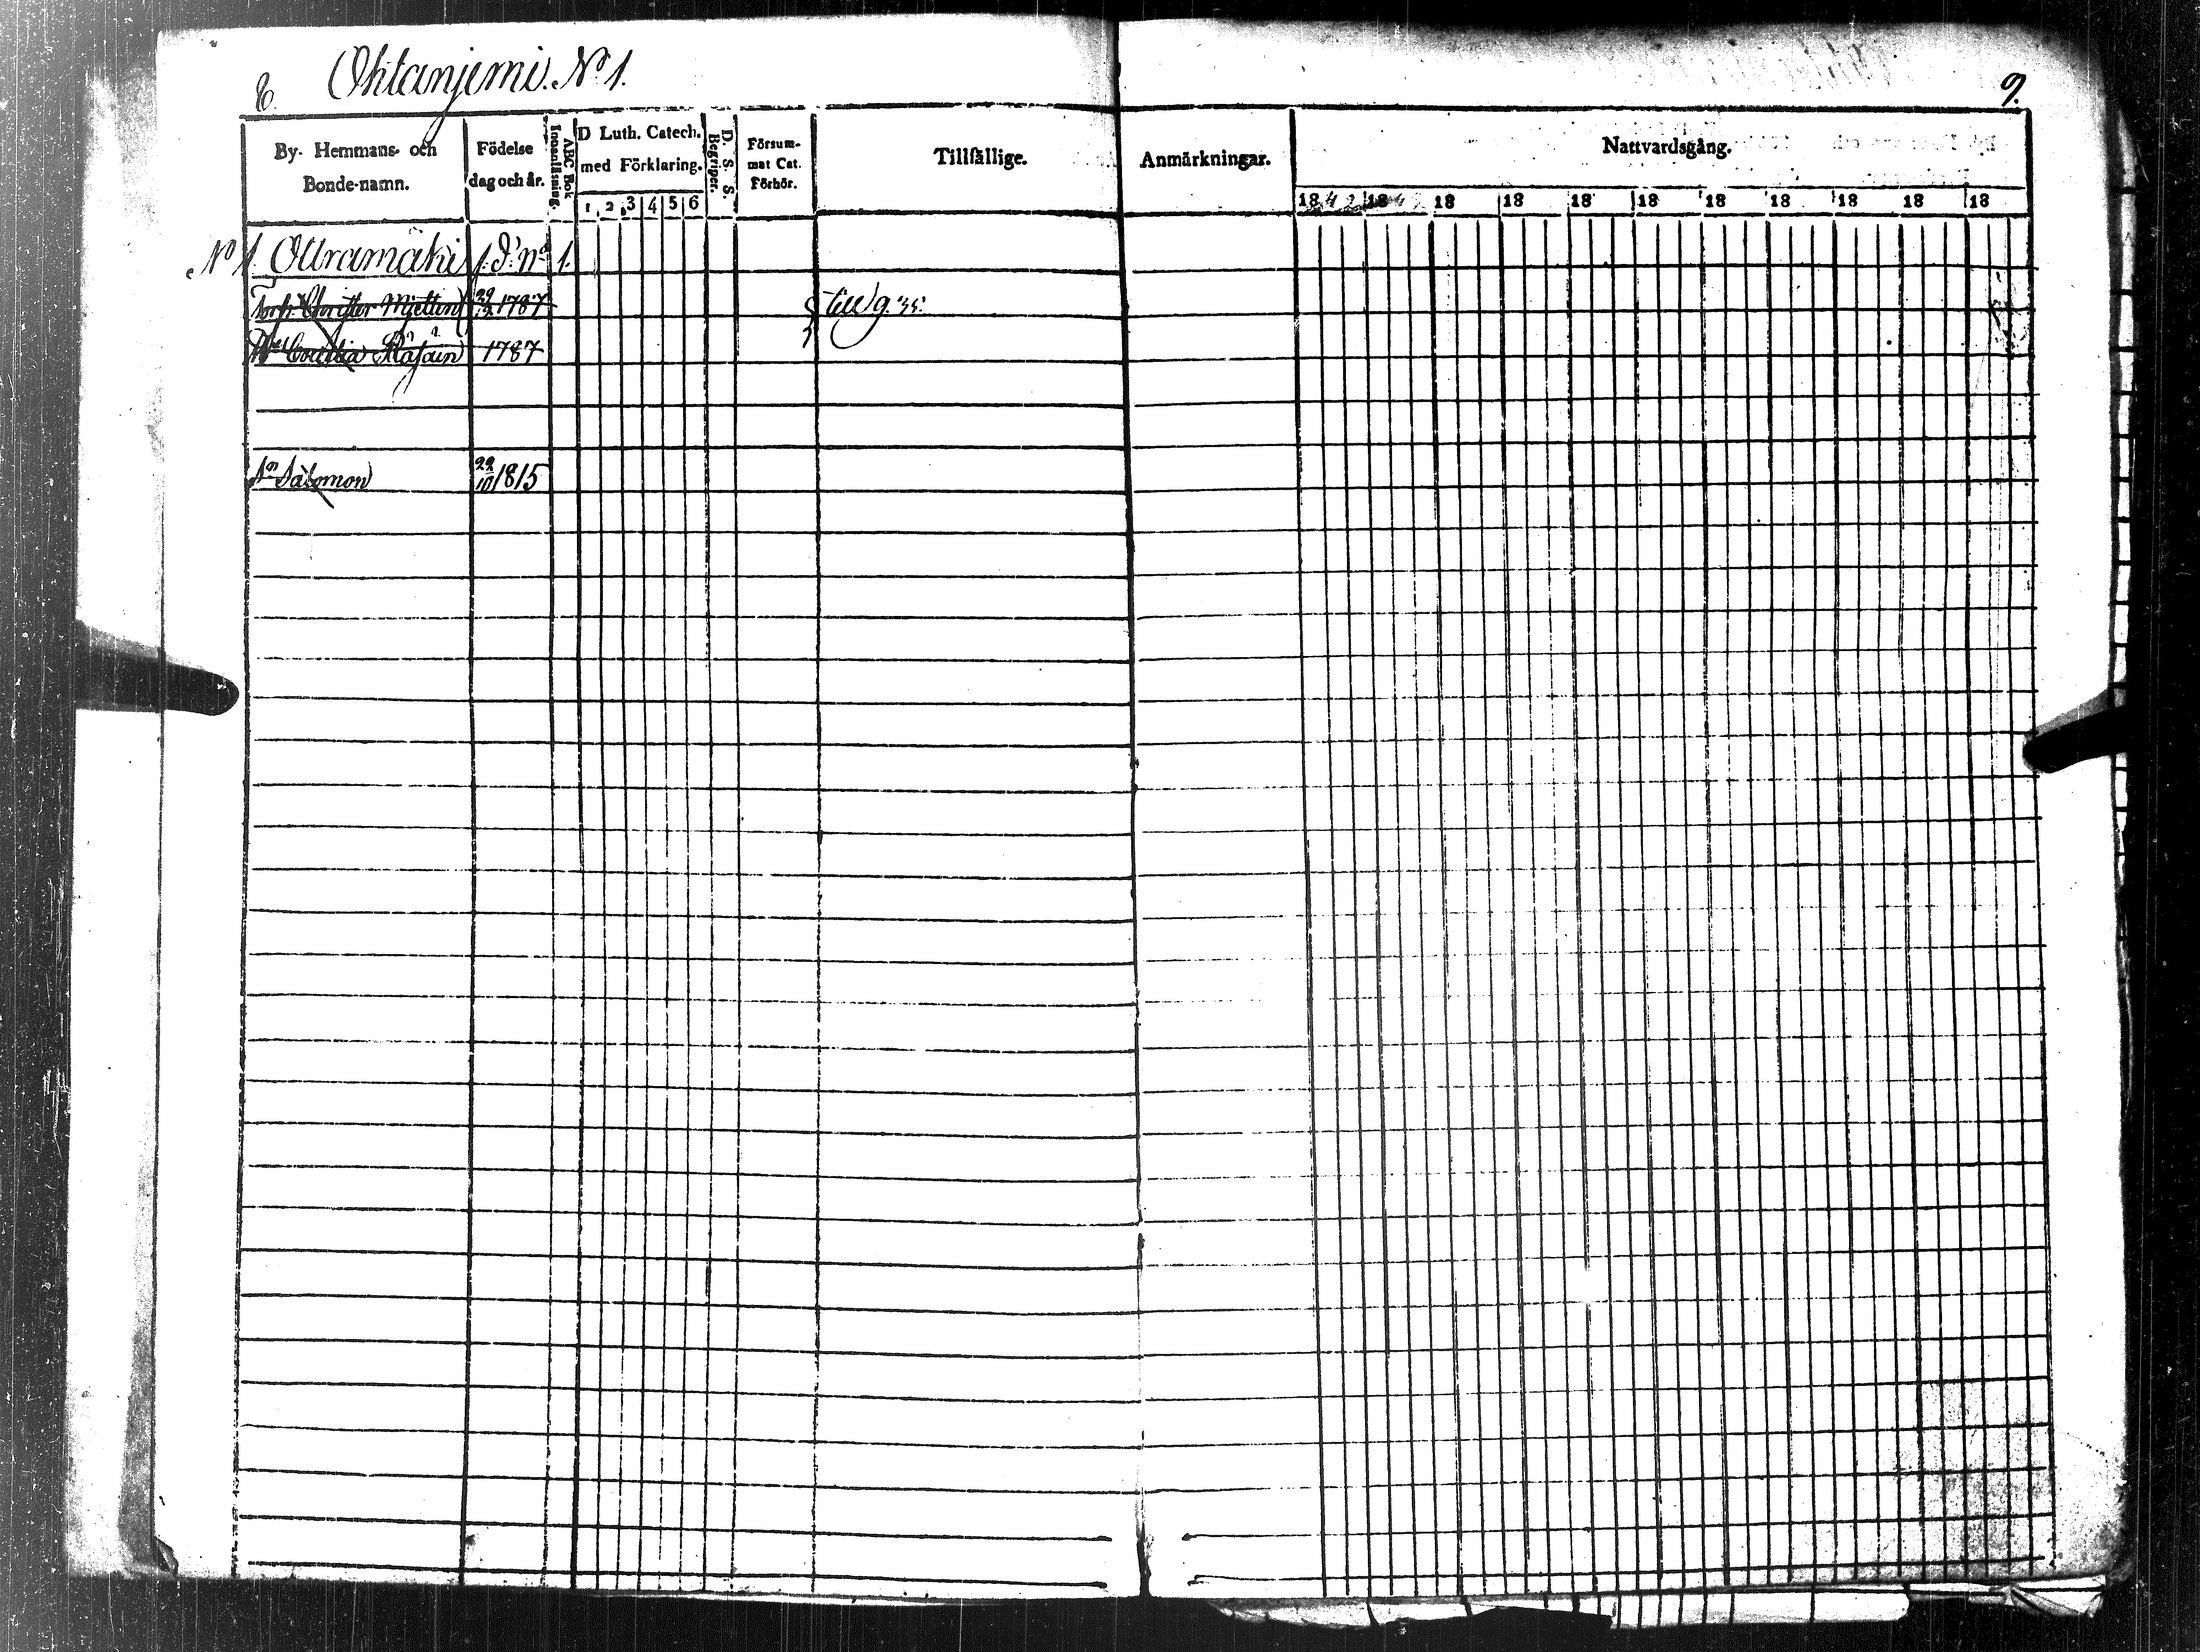 Ohtanjemi. No 1.
9.
By- Hemmans- och Bonde-namn.
Födelse dag och år.
ABC Bok Innanläsning.
D Luth. Catech. med Förklaring.
1 2 3 4 5 6
D. S. S. Begriper.
Försummat Cat. Förhör.
Tillfällige.
Anmärkningar.
Nattvardsgång.
1842 184 18 18 18 18 18 18 18 18 18
No 1. Ollramäki
Christer Mjettin 1787
till g. 35.
1787
Sn Salomon 22/10 1815